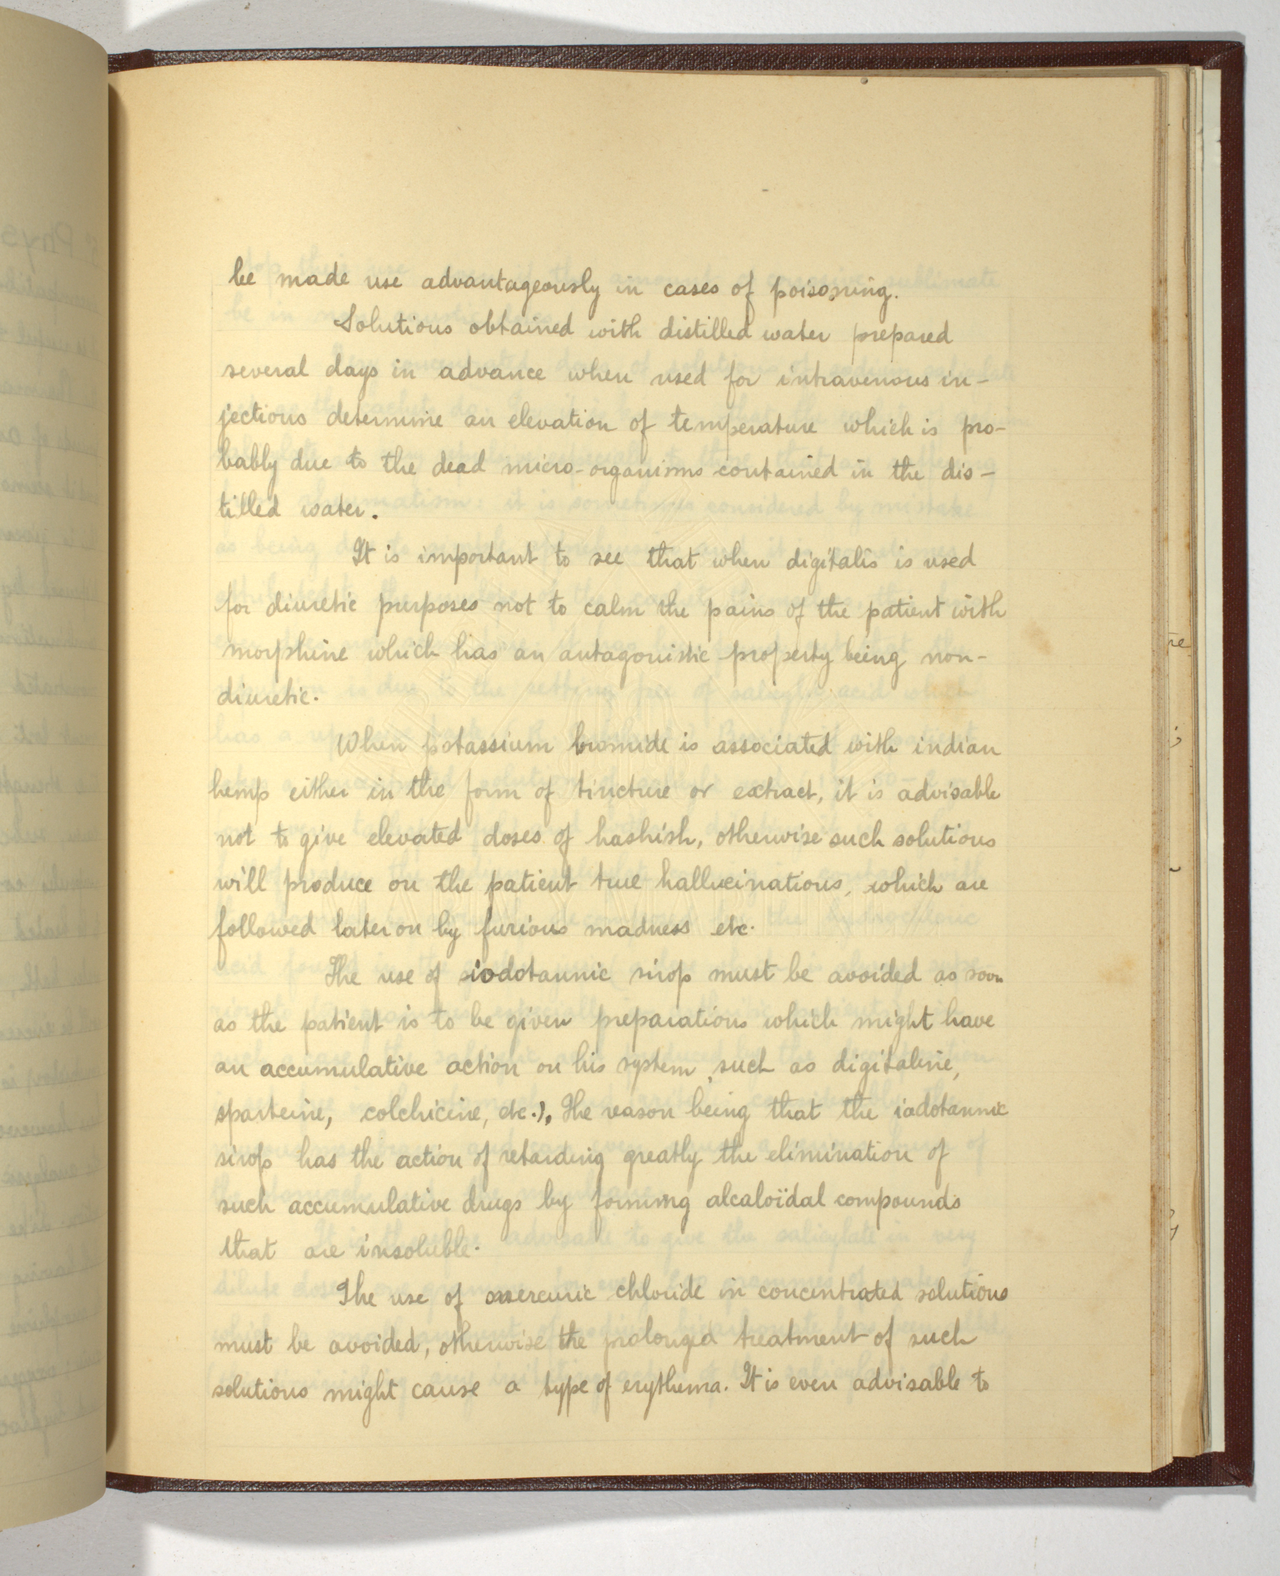 be made use advantageously in cases of poisoning.
Solutions obtained with distilled water prepared
several days in advance when used for intravenous in-
jections determine an elevation of temperature which is pro-
bably due to the dead micro-organisms contained in the dis-
tilled water.
It is important to see that when digitalis is used
for diuretic purposes not to calm the pains of the patient with
morphine which has an antagonistic property being non-
diuretic.
When potassium bromide is associated with indian
hemp either in the form of tincture or extract, it is advisable
not to give elevated doses of hashish, otherwise such solutions
will produce on the patient true hallucinations, which are
followed later on by furious madness etc.
The use of iodotannic sirop must be avoided as soon
as the patient is to be given preparations which might have
an accumulative action on his system, such as digitaline,
sparteine, colchicine, etc.), The reason being that the iodotannic
sirop has the action of retarding greatly the elimination of
such accumulative drugs by forming alcaloïdal compounds
that are insoluble.
The use of mercuric chloride in concentrated solutions
must be avoided, otherwise the prolonged treatment of such
solutions might cause a type of erythema. It is even advisable to